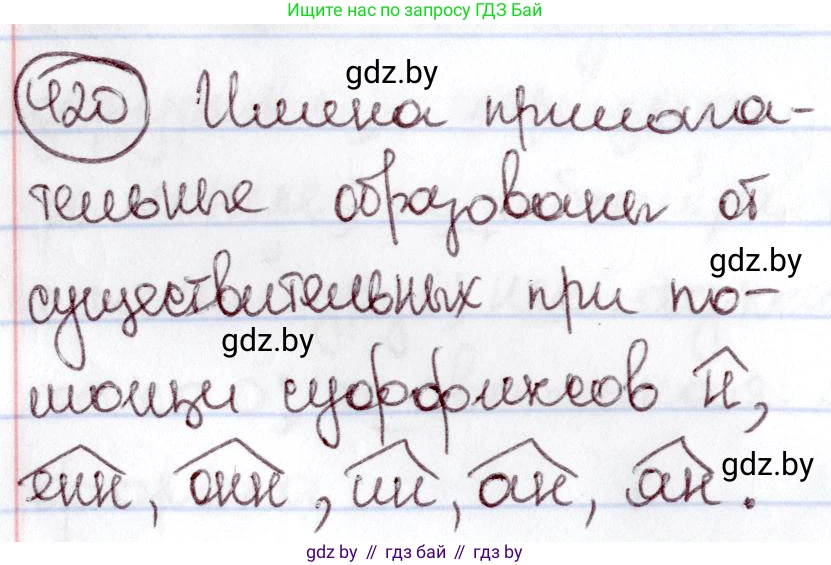 Ищите нас по запросу ГДЗ Бай
gdz.by
420 Имена прилага-
тельные образованы от
gdz.by
существительных при по-
gdz.by
мощи суффиксов н,
енн, онн, ин, ан, ян.
gdz.by
gdz by // гдз бай // гдз by